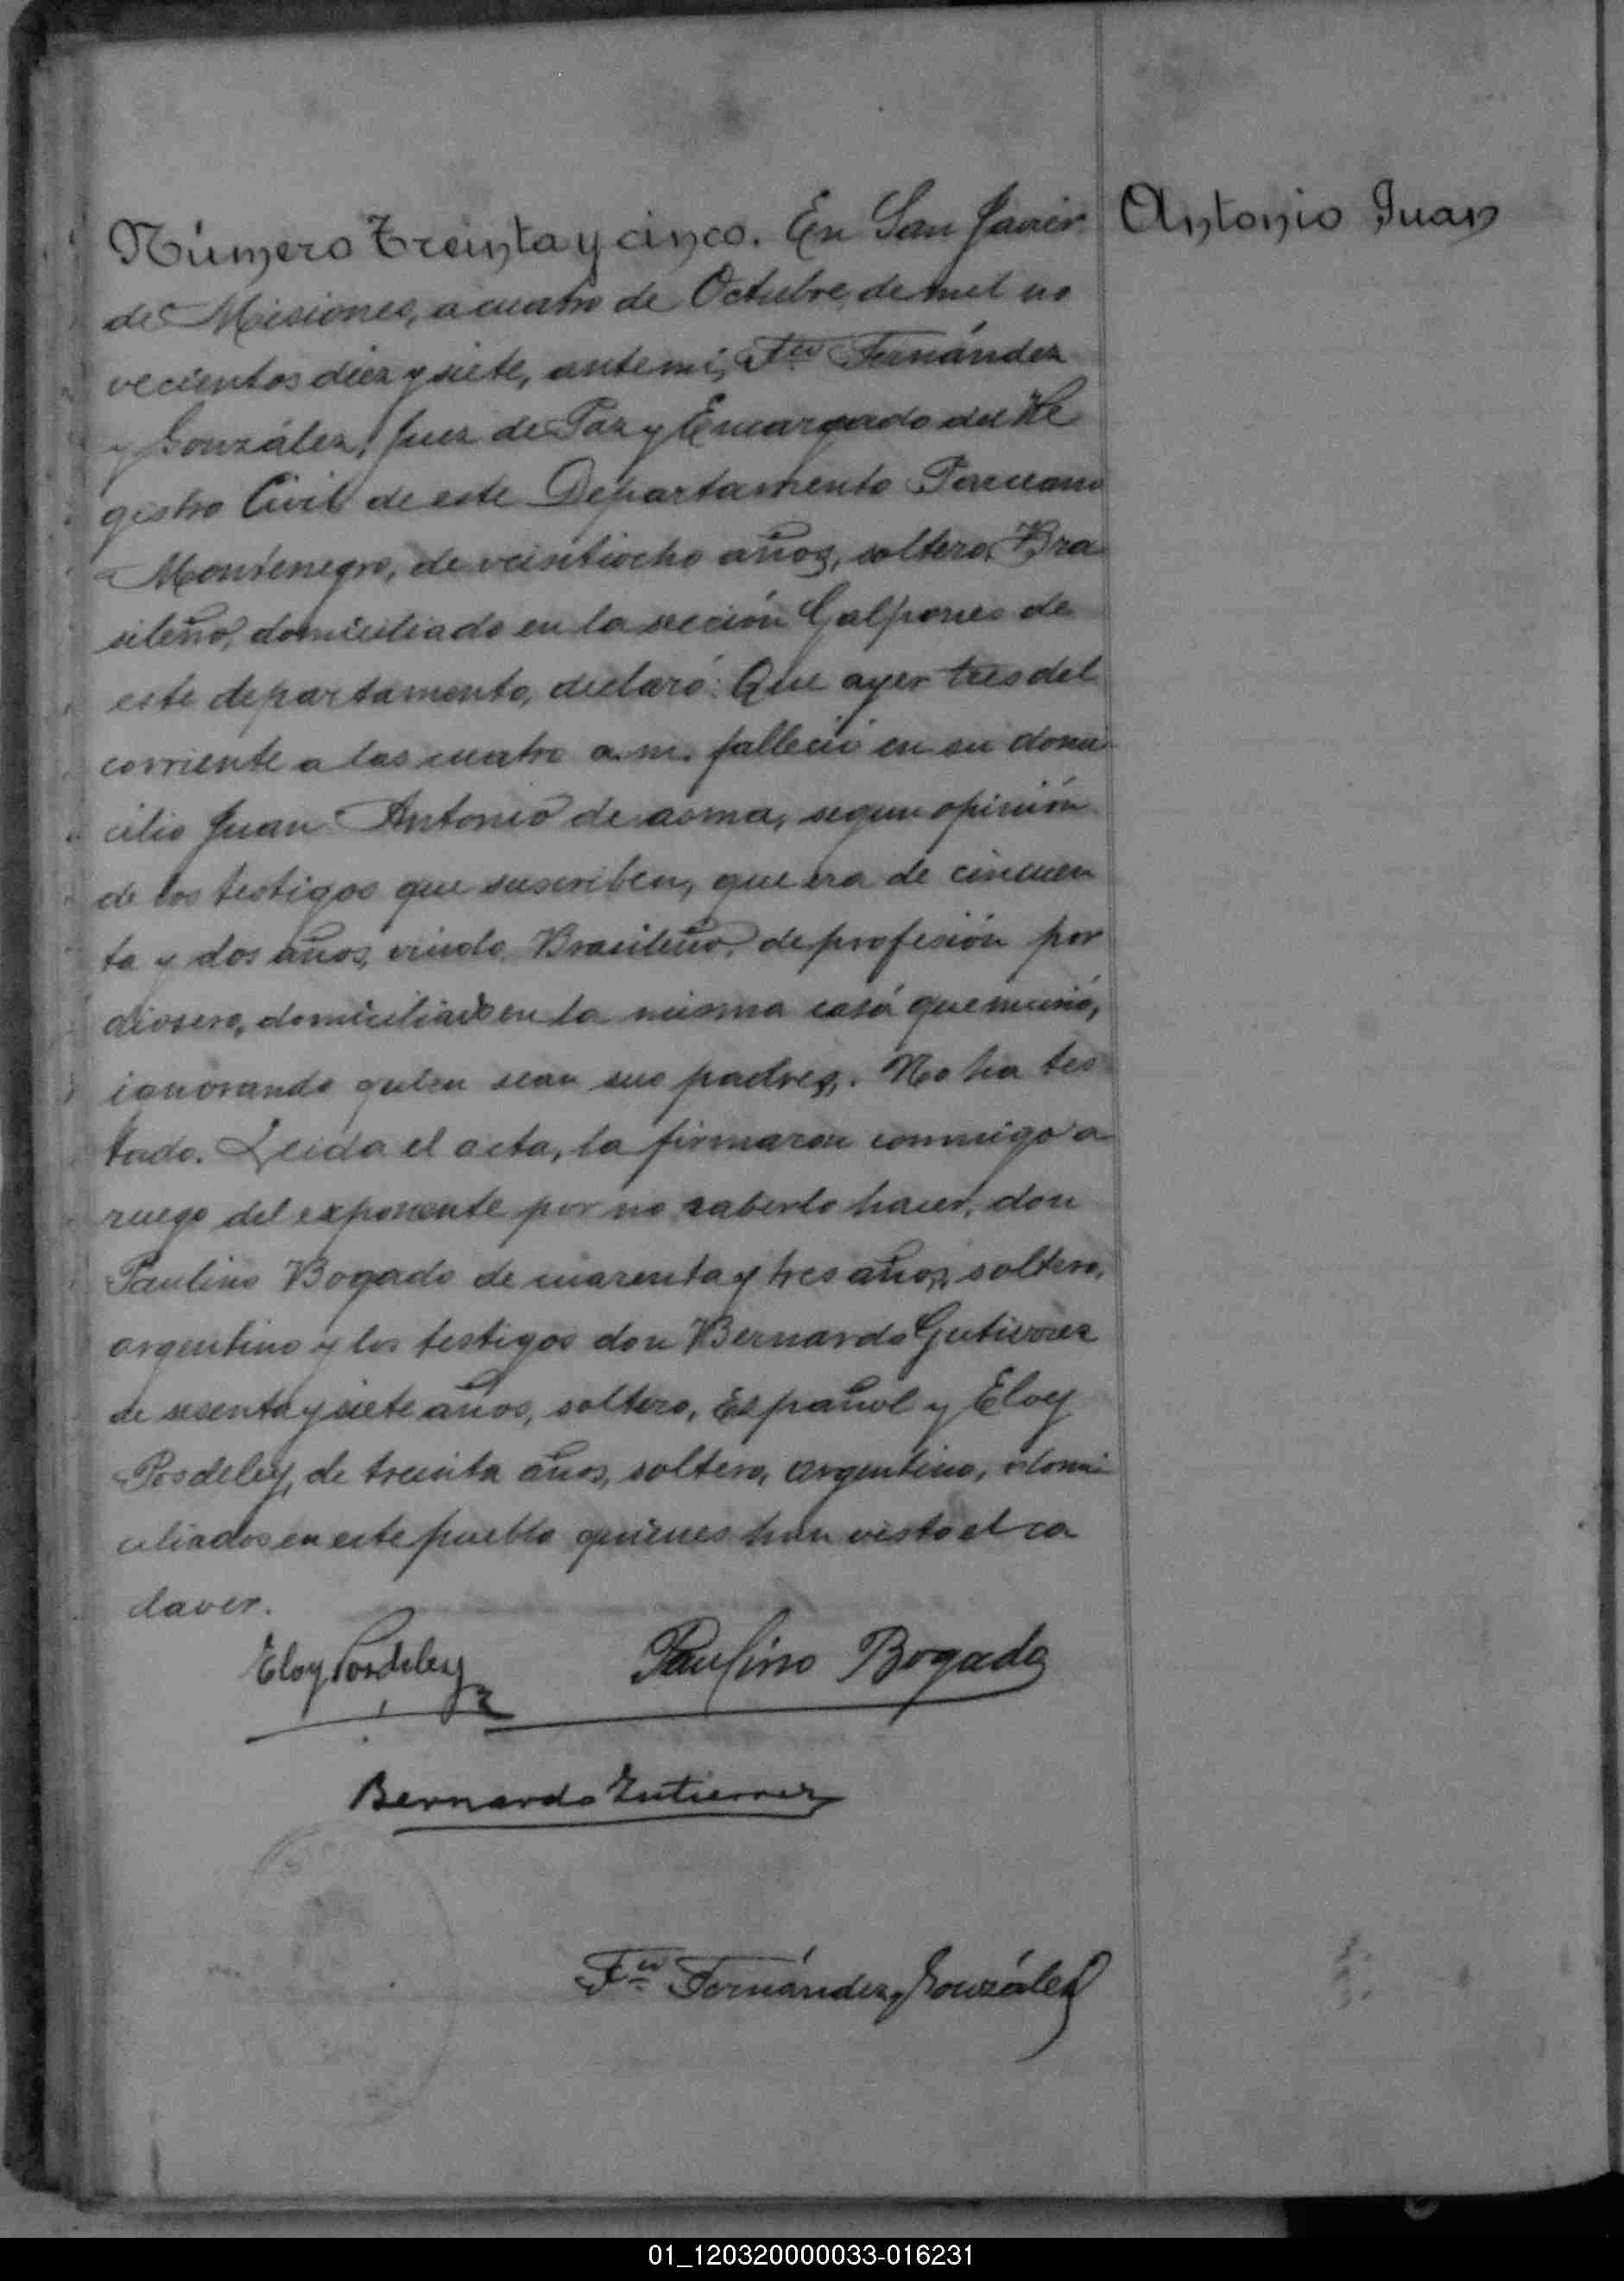 Número Treinta y cinco. En San Javier
Antonio Juan
de Misiones, a cuatro de Octubre de mil no
vecientos diez y siete, ante mi, Fco Fernández
y González, Juez de Paz y Encargado del Re
gistro Civil de este Departamento
Montenegro, de veintiocho años, soltero, Bra
sileño, domiciliado en la sección Galpones de
este departamento, declaró: Que ayer tres del
corriente a las cuatro a.m. falleció en su domi
cilio Juan Antonio de asma, segun opinión
de los testigos que suscriben, que era de cincuen
ta y dos años, viudo, Brasileño, de profesión por
diosero, domiciliado en la misma casa que murió,
ignorando quien sean sus padres. No ha tes
tado. Leida el acta, la firmaron conmigo a
ruego del exponente por no saberlo hacer, don
Paulino Bogado de cuarenta y tres años, soltero,
argentino y los testigos don Bernardo Gutierrez
de sesenta y siete años, soltero, Español y Eloy
Posdeley, de treinta años, soltero, argentino, domi
ciliados en este pueblo quienes han visto el ca
daver.
Eloy Posdeley
Paulino Bogado
Bernardo Gutierrez
Fco Fernández y González
01_120320000033-016231